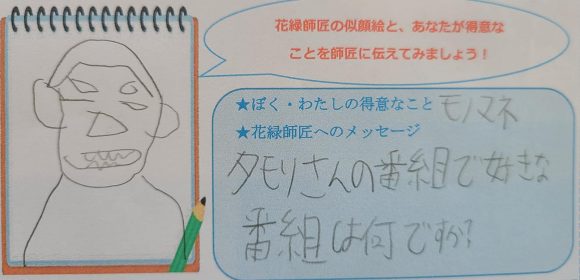 花緑師匠の似顔絵と、あなたが得意な
ことを師匠に伝えてみましょう!
★ぼく・わたしの得意なこと モノマネ
★花緑師匠へのメッセージ
タモリさんの番組で好きな
番組は何ですか?